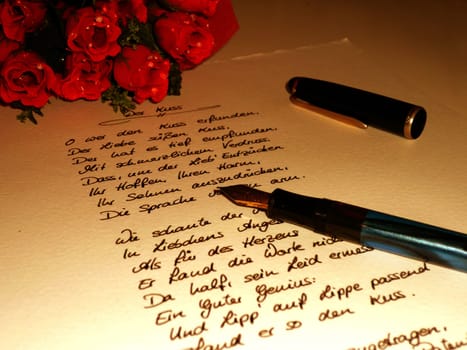 Der Kuss
O wer den Kuss erfunden,
Der Liebe süßen Kuss,
Der hat es tief empfunden,
Mit schmerzlichem Verdruss.
Dass, um der Lieb' Entzücken
Ihr Hoffen, Ihren Harm,
Ihr Sehnen auszudrücken,
Die Sprache arm.
Wie schaute der
In Liebchens Anges
Als für des Herzens
Er fand die Worte nich
Da half, sein Leid ermes
Ein guter Genius:
Und Lipp' auf Lippe passend
fand er so den Kuss.
getragen,